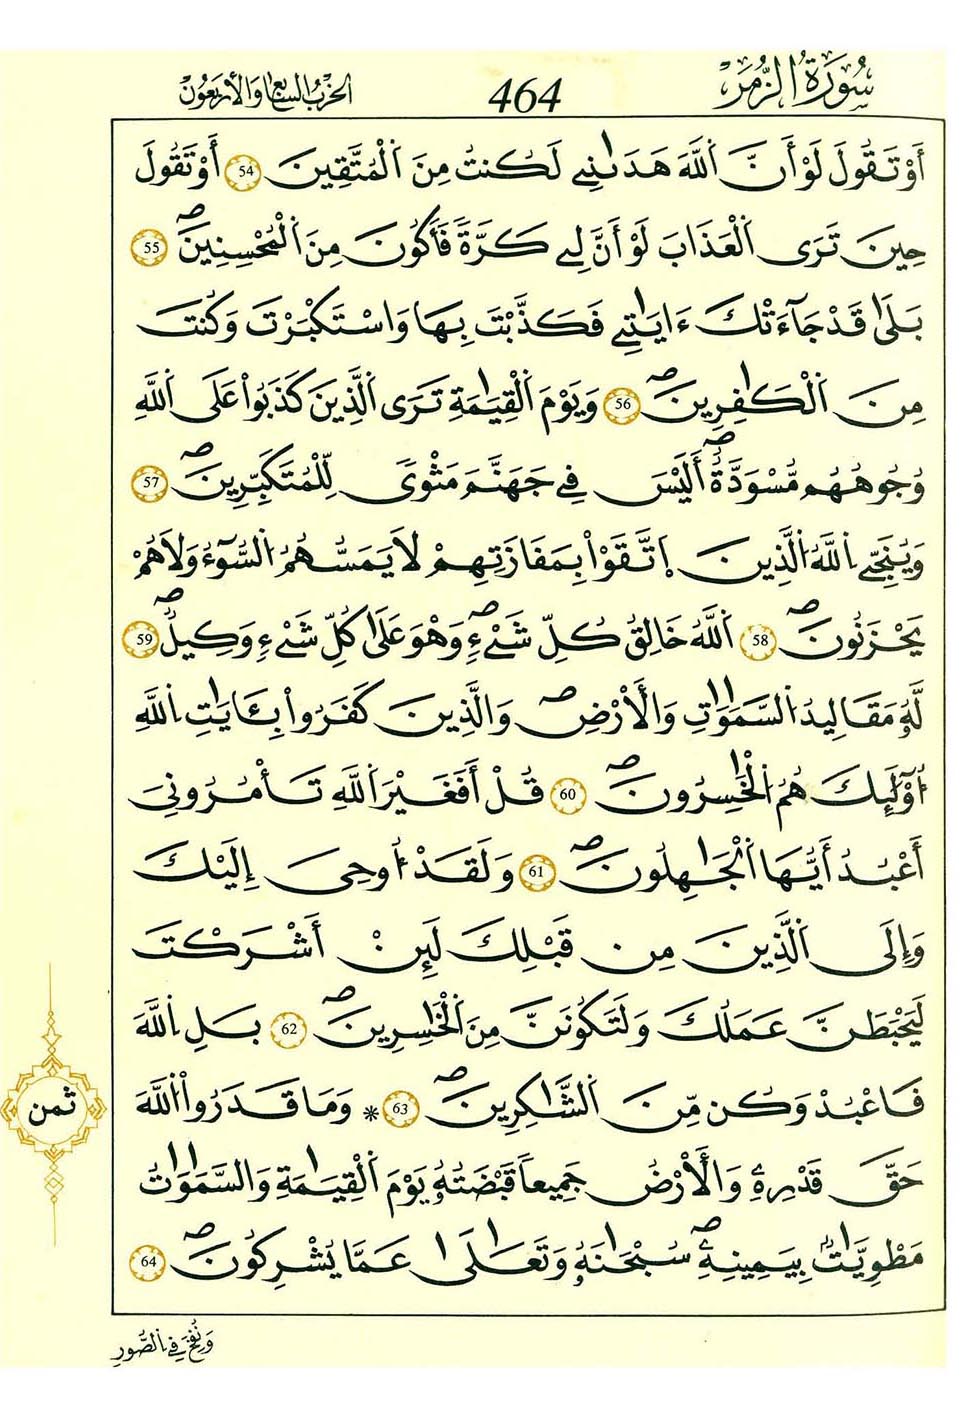 سُورَةُ الزُّمَرِ 464 الحِزْبُ السَّابِعُ وَالأَرْبَعُونَ
أَوْ تَقُولَ لَوْ أَنَّ اَ۬للَّهَ هَدَىٰنِے لَكُنتُ مِنَ اَ۬لْمُتَّقِينَ 54 أَوْ تَقُولَ
حِينَ تَرَى اَ۬لْعَذَابَ لَوْ أَنَّ لِے كَرَّةٗ فَأَكُونَ مِنَ اَ۬لْمُحْسِنِينَۖ 55
بَلَىٰ قَدْ جَآءَتْكَ ءَايَٰتِے فَكَذَّبْتَ بِهَا وَاسْتَكْبَرْتَ وَكُنتَ
مِنَ اَ۬لْكَٰفِرِينَۖ 56 وَيَوْمَ اَ۬لْقِيَٰمَةِ تَرَى اَ۬لذِينَ كَذَبُواْ عَلَى اَ۬للَّهِ
وُجُوهُهُم مُّسْوَدَّةٌۖ أَلَيْسَ فِے جَهَنَّمَ مَثْوىٗ لِّلْمُتَكَبِّرِينَۖ 57
وَيُنَجِّے اِ۬للَّهُ اُ۬لذِينَ اَ۪تَّقَوْاْ بِمَفَازَتِهِمْ لَا يَمَسُّهُمُ اُ۬لسُّوٓءُ وَلَا هُمْ
يَحْزَنُونَۖ 58 اَ۬للَّهُ خَٰلِقُ كُلِّ شَےْءٖۖ وَهُوَ عَلَىٰ كُلِّ شَےْءٖ وَكِيلٞۖ 59
لَّهُۥ مَقَالِيدُ اُ۬لسَّمَٰوَٰتِ وَالْأَرْضِۖ وَالذِينَ كَفَرُواْ بِـَٔايَٰتِ اِ۬للَّهِ
أُوْلَٰٓئِكَ هُمُ اُ۬لْخَٰسِرُونَۖ 60 قُلْ أَفَغَيْرَ اَ۬للَّهِ تَأْمُرُونِيَ
أَعْبُدُ أَيُّهَا اَ۬لْجَٰهِلُونَۖ 61 وَلَقَدْ أُوحِيَ إِلَيْكَ
وَإِلَى اَ۬لذِينَ مِن قَبْلِكَ لَئِنْ أَشْرَكْتَ
لَيَحْبَطَنَّ عَمَلُكَ وَلَتَكُونَنَّ مِنَ اَ۬لْخَٰسِرِينَۖ 62 بَلِ اِ۬للَّهَ
فَاعْبُدْ وَكُن مِّنَ اَ۬لشَّٰكِرِينَۖ 63 * وَمَا قَدَرُواْ اُ۬للَّهَ
ثمن
حَقَّ قَدْرِهِۦ وَالْأَرْضُ جَمِيعاٗ قَبْضَتُهُۥ يَوْمَ اَ۬لْقِيَٰمَةِ وَالسَّمَٰوَٰتُ
مَطْوِيَّٰتُۢ بِيَمِينِهِۦۖ سُبْحَٰنَهُۥ وَتَعَٰلَىٰ عَمَّا يُشْرِكُونَۖ 64
وَنُفِخَ فِے اِ۬لصُّورِ